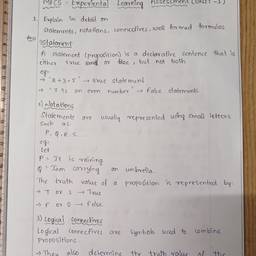 MFCS - Experiential Learning Assessment (UNIT-1)
1. Explain in detail on
Statements, notations, connectives, well formed formulas
1) Statement
A statement (proposition) is a declarative sentence that is
either true or false, but not both
eg:-
→ "2+3=5" → true statement
→ "7 is an even number" → false statements.
2) Notations
Statements are usually represented using small letters
such as
P, Q, R, S.
eg:
Let
P = It is raining
Q = I am carrying an umbrella.
The truth value of a proposition is represented by:
→ T or 1 → True
→ F or 0 → False.
3) Logical Connectives
Logical connectives are symbols used to combine
propositions.
→ They also determine the truth value of the